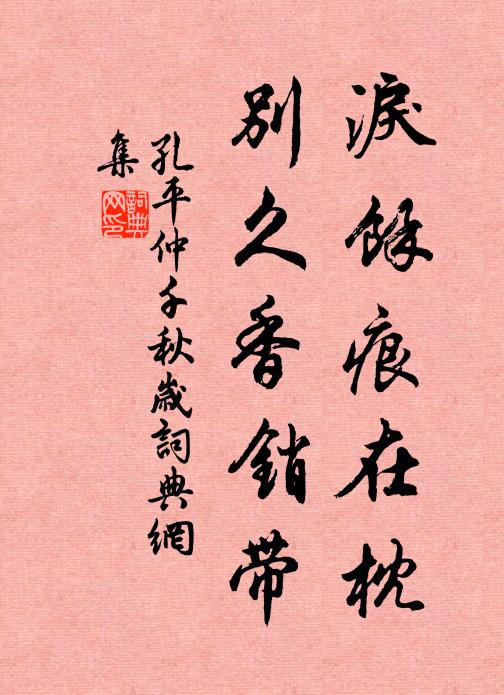 淚餘痕在枕
別久香銷帶
孔平仲千秋歲詞典網
集
詞典
网印